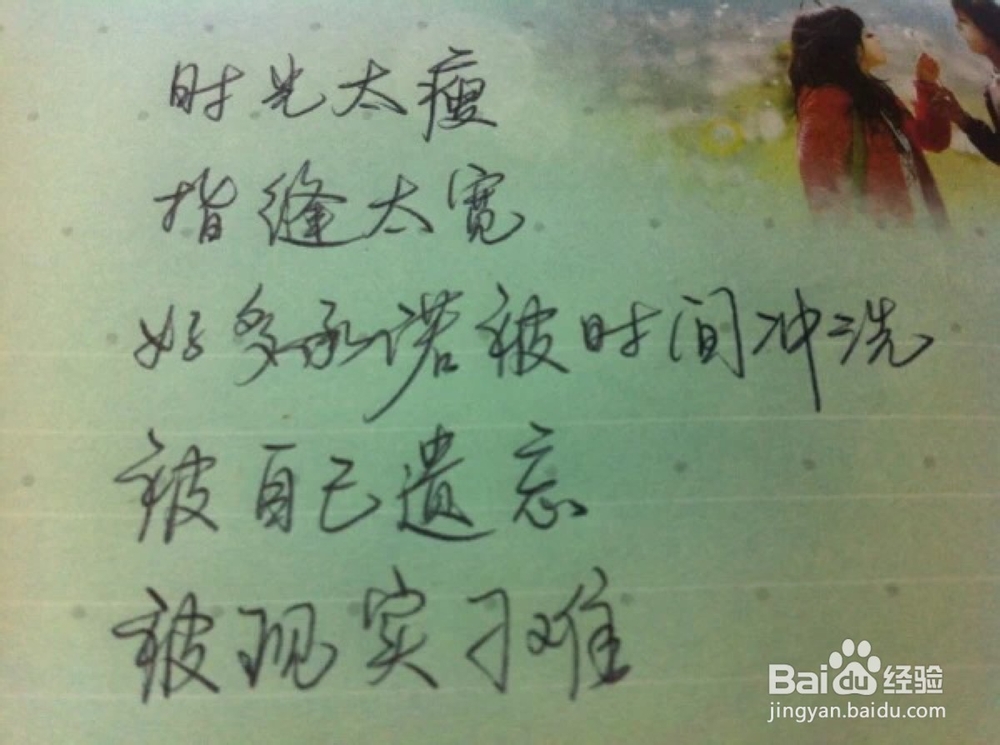 时光太瘦
指缝太宽
好多承诺被时间冲洗
被自己遗忘
被现实刁难
Baidu经验
jingyan.baidu.com